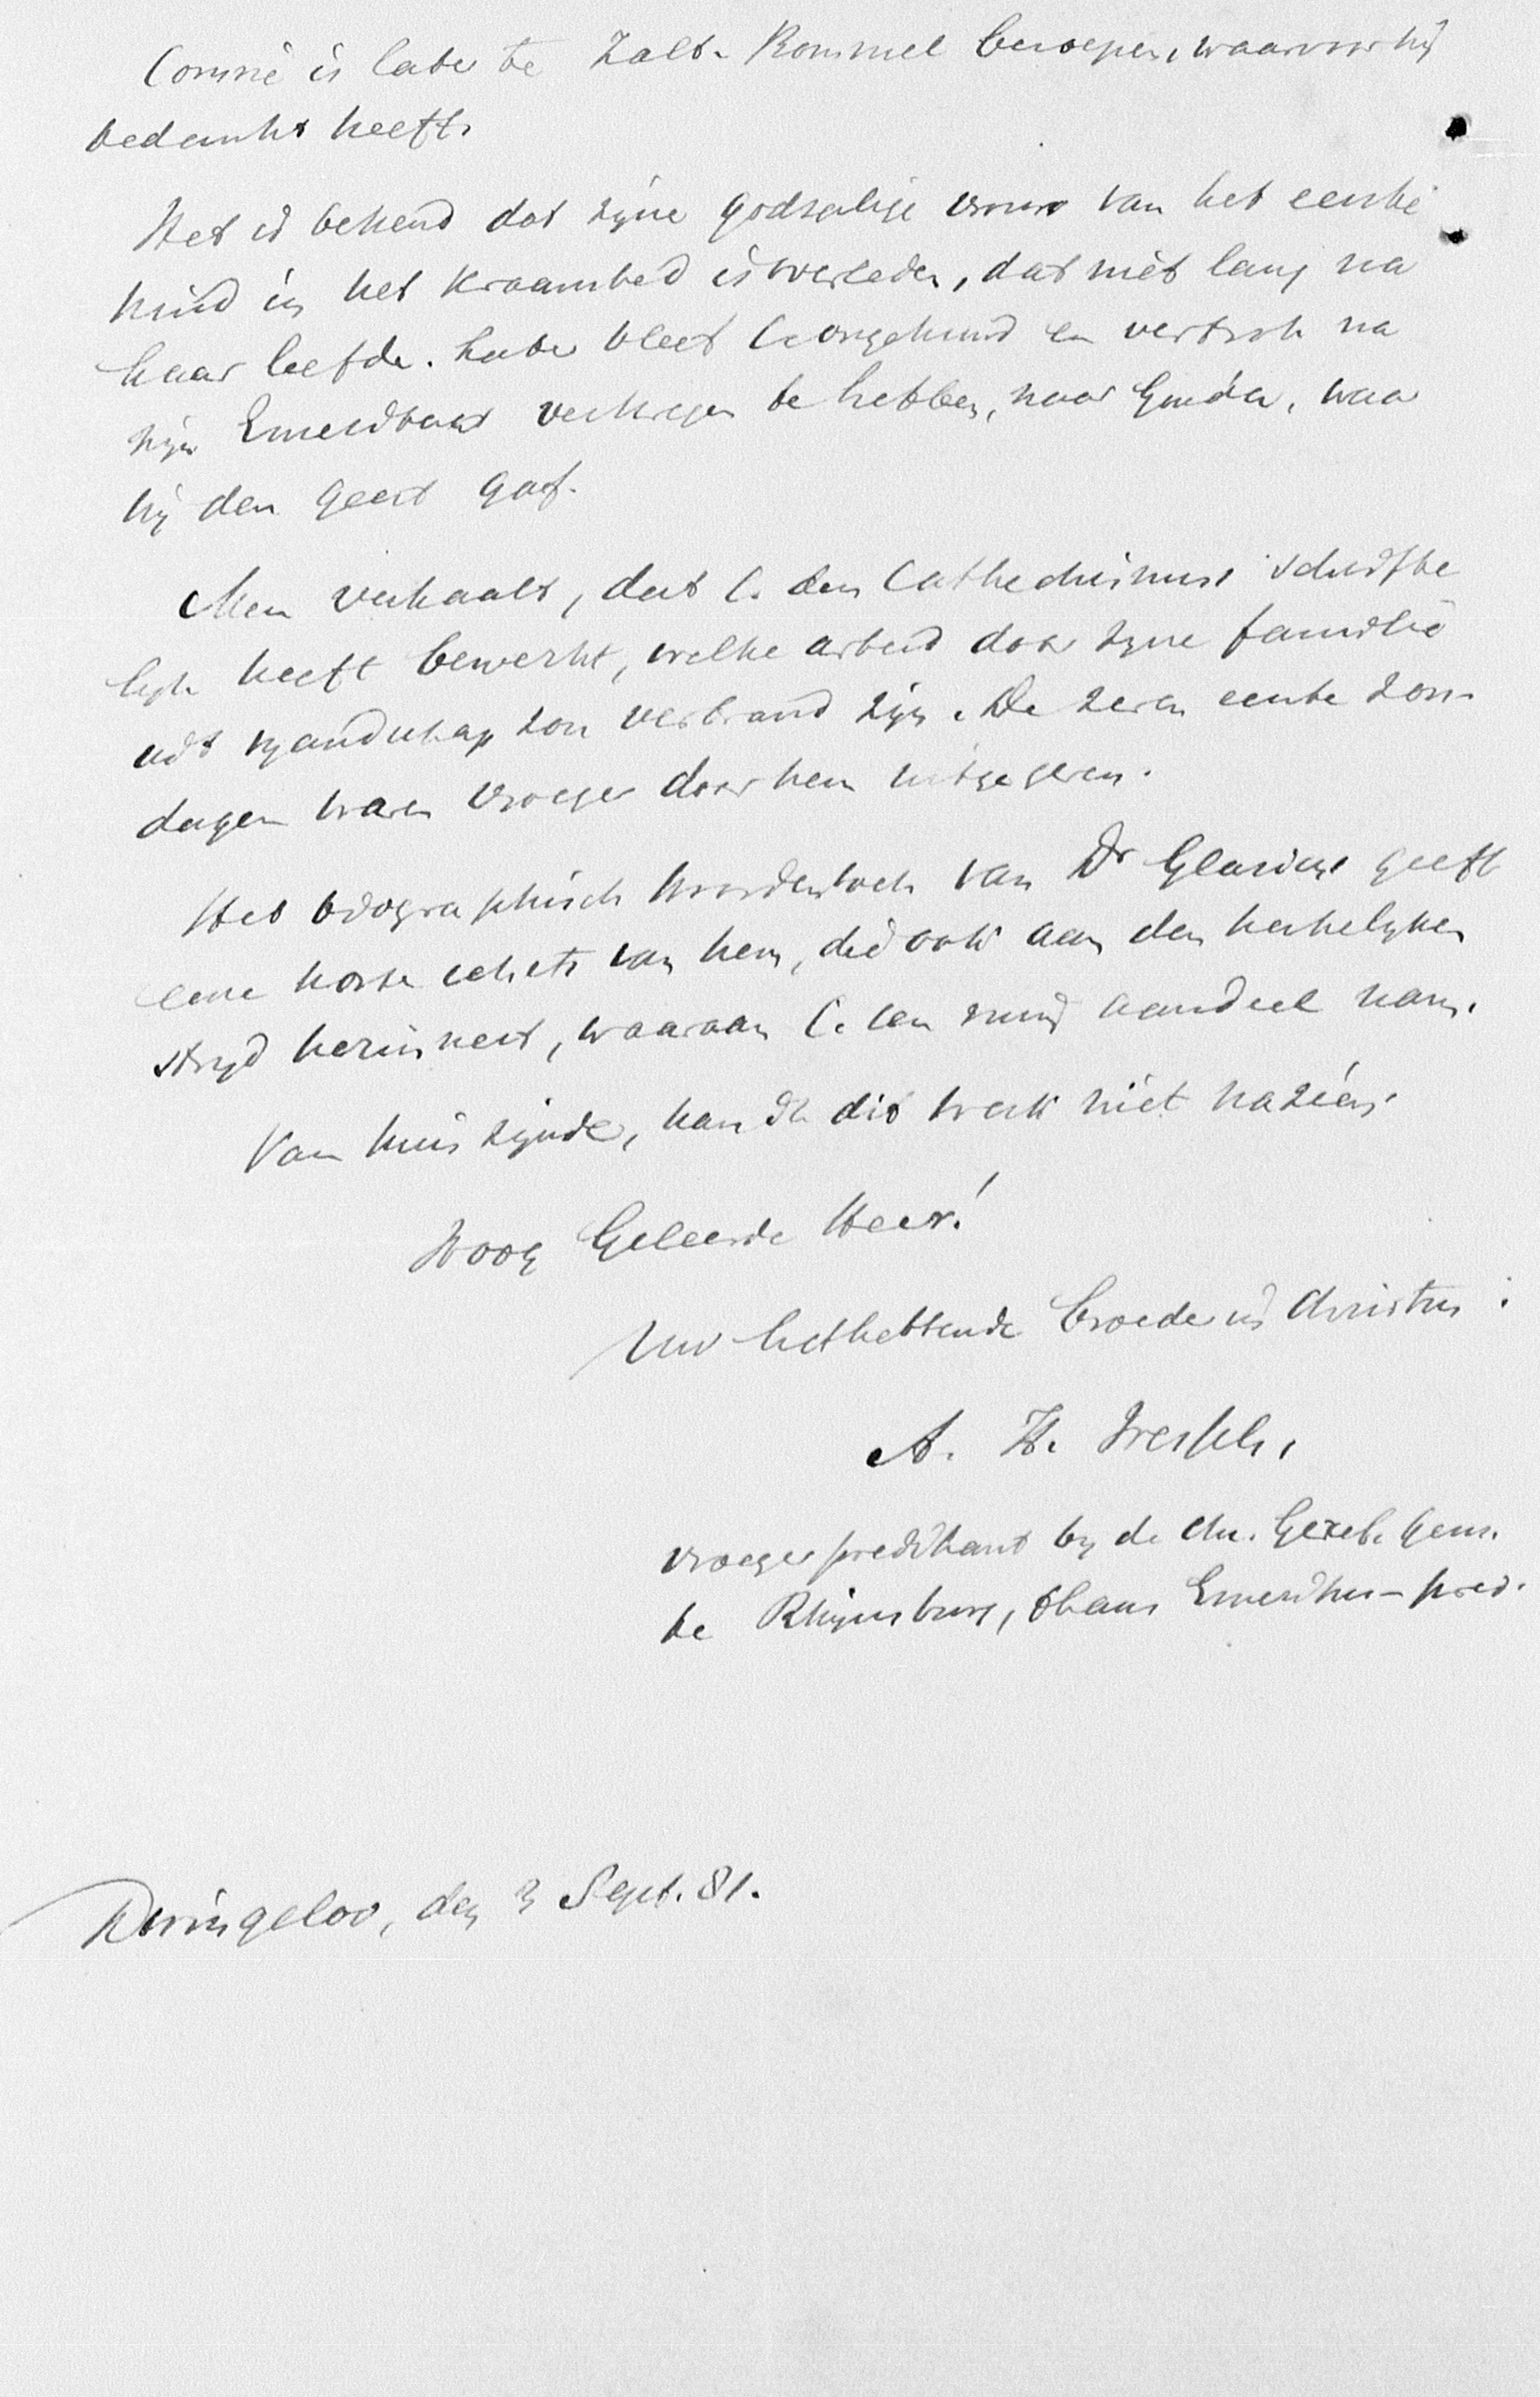 Comrie is later te Zalt-Bommel beroepen, waarvoor hij
bedankt heeft.
Het is bekend dat zijne godzalige vrouw van het eerste
kind in het Kraambed is overleden, dat niet lang na
haar leefde. Later bleef C. ongehuwd en vertrok na
zijn Emeritaat verkregen te hebben, naar Gouda, waar
hij den geest gaf.
Men verhaalt, dat C. den Cathechismus schrifte
lijk heeft bewerkt, welke arbeid door zijne familie
uit vijandschap zou verbrand zijn. De zeven eerste Zon-
dagen waren vroeger door hem uitgegeven.
Het biographisch Woordenboek van Dr Glasius geeft
eene korte schets van hem, die ook aan den kerkelijken
strijd herinnert, waaraan C. een ruim aandeel nam.
Van huis zijnde, kan ik dit werk niet nazien.
Hoog Geleerde Heer!
Uw liefhebbende broeder in Christus:
A. H.
vroeger predikant bij de Chr. Geref. Gem.
te Rhijnsburg, thans Emeritus-pred.
Dwingeloo, den 3 Sept. 81.